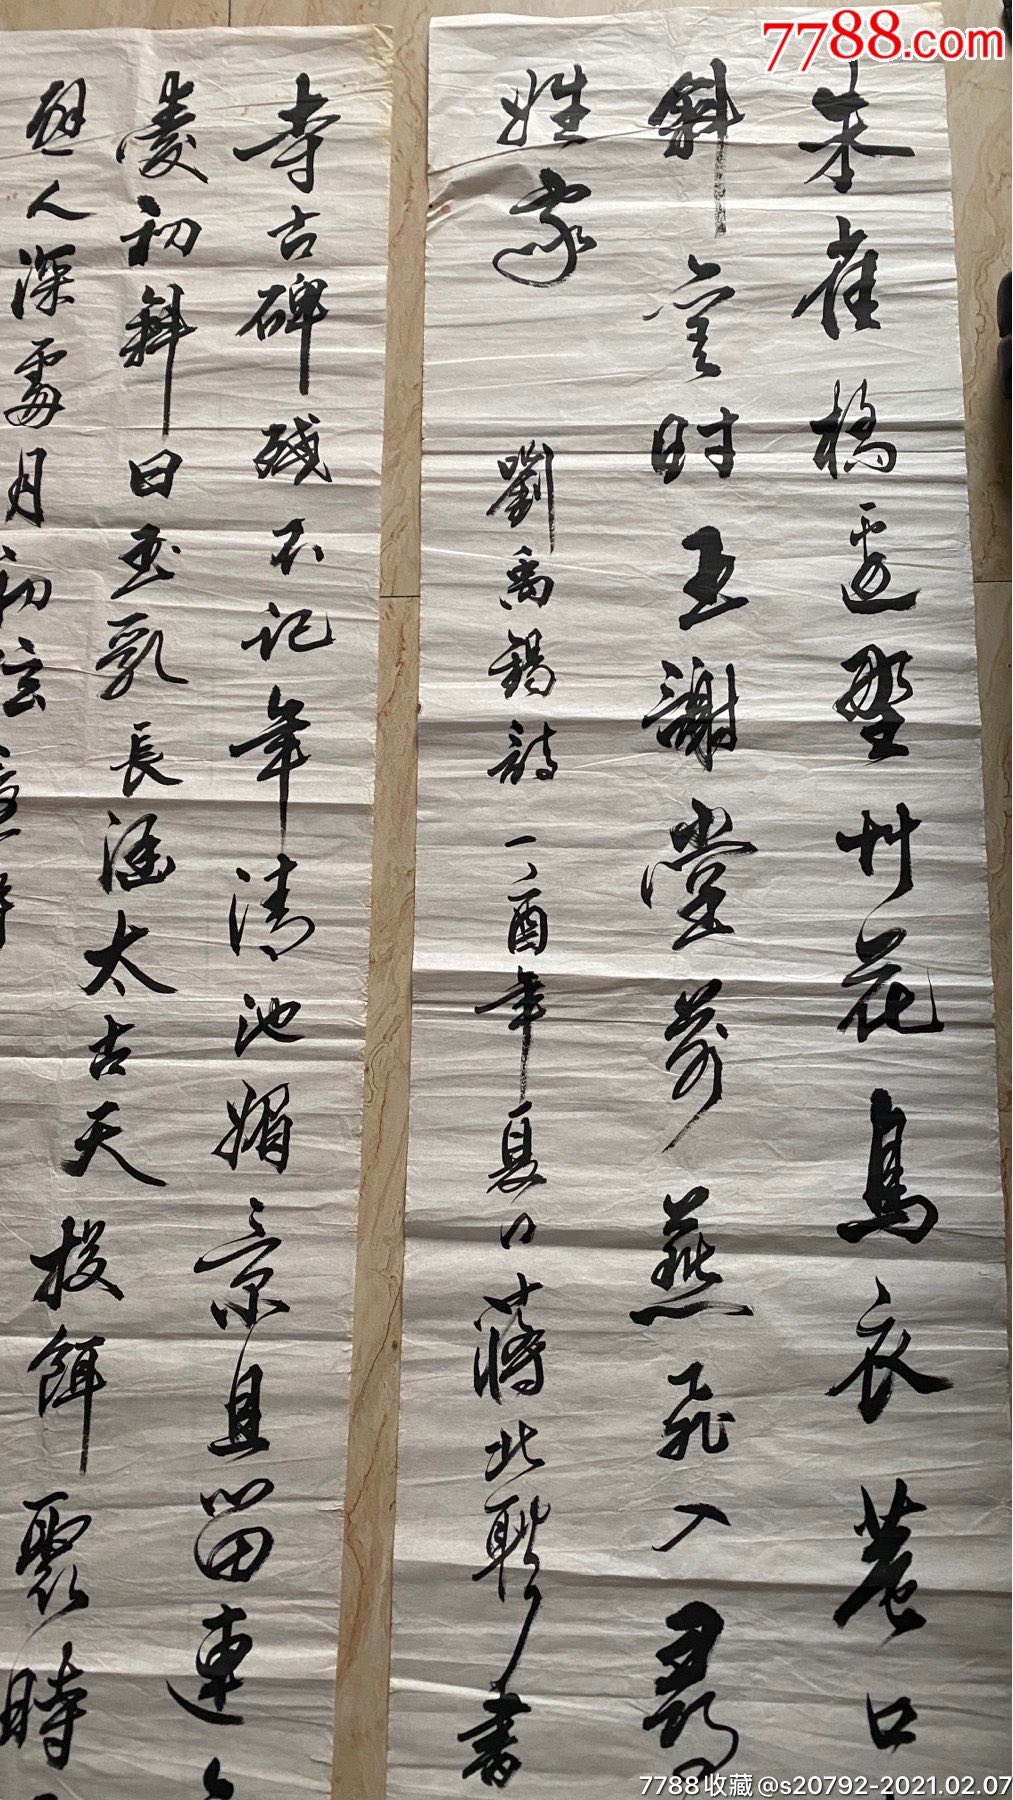 7788.com
朱雀橋邊野艸花烏衣巷口
斜 堂时王謝堂前燕飛入尋
姓家
劉禹錫詩 丁酉年夏口蔣北耿書
寺古碑残不記年清池媚景且留連
亭初斜日玉乳長涵太古天投餌聚時
人深處月初
7788收藏@s20792-2021.02.07